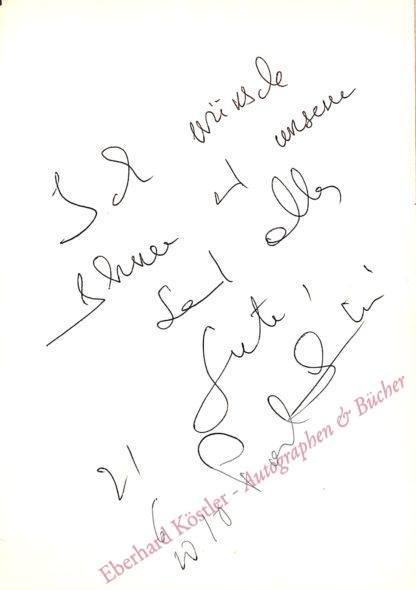 Ich wünsche
Ihnen und unserem
Land alles
Gute,
21
6
Eberhard Köstler - Autographen & Bücher